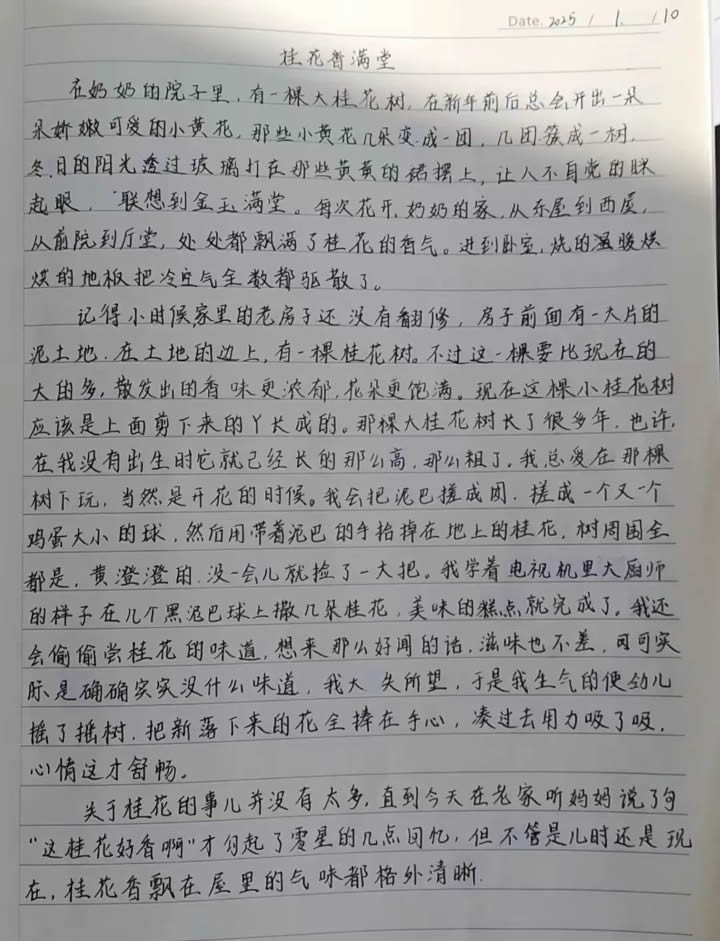 Date. 2025 / 1. / 10
桂花香满堂
在奶奶的院子里，有一棵大桂花树，在新年前后总会开出一朵
朵娇嫩可爱的小黄花，那些小黄花几朵变成一团，几团簇成一树，
冬日的阳光透过玻璃打在那些黄黄的裙摆上，让人不自觉的眯
起眼，联想到金玉满堂。每次花开，奶奶的家，从东屋到西屋，
从前院到厅堂，处处都飘满了桂花的香气。进到卧室，烧的温暖烘
烘的地板把冷空气全数都驱散了。
记得小时候家里的老房子还没有翻修，房子前面有一大片的
泥土地，在土地的边上，有一棵桂花树。不过这一棵要比现在的
大的多，散发出的香味更浓郁，花朵更饱满。现在这棵小桂花树
应该是上面剪下来的丫长成的。那棵大桂花树长了很多年，也许，
在我没有出生时它就已经长的那么高，那么粗了。我总爱在那棵
树下玩，当然是开花的时候。我会把泥巴搓成圆，搓成一个又一个
鸡蛋大小的球，然后用带着泥巴的手抬掉在地上的桂花，树周围全
都是，黄澄澄的，没一会儿就捡了一大把。我学着电视机里大厨师
的样子在几个黑泥巴球上撒几朵桂花，美味的糕点就完成了。我还
会偷偷尝桂花的味道，想来那么好闻的话，滋味也不差，可实
际是确确实实没什么味道，我大失所望，于是我生气的使劲儿
摇了摇树，把新落下来的花全捧在手心，凑过去用力吸了吸，
心情这才舒畅。
关于桂花的事儿并没有太多，直到今天在老家听妈妈说了句
“这桂花好香啊”才勾起了零星的几点回忆，但不管是儿时还是现
在，桂花香飘在屋里的气味都格外清晰.